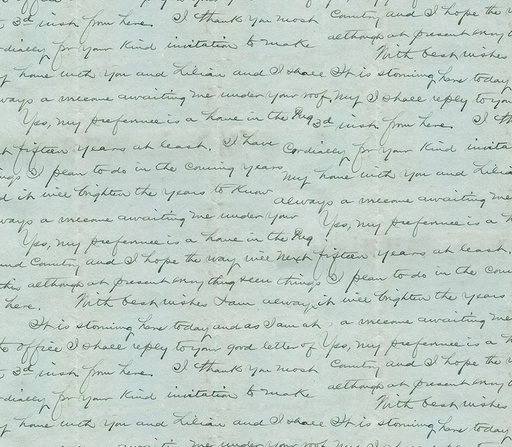 3d inst from here. I thank you most Country and I hope the
although at present
cordially for your kind invitation to make With best wishes
home with you and Lilian and I shall It is storming here today
always a welcome awaiting me under your roof. My I shall reply to your
Yes, my preference is a home in the 3d inst from here. I
fifteen years at least. I have Cordially for your kind
I plan to do in the coming years my home with you and
it will brighten the years to know always a welcome awaiting me
always a welcome awaiting me under your Yes, my preference is a
Yes, my preference is a home in the fifteen years at least.
and Country and I hope the way will next things I plan to do in the
although at present everything seem it will brighten the years
here. With best wishes I am always a welcome awaiting me
It is storming here today and as I am at Yes, my preference is a
office I shall reply to your good letter of Country and I hope the
3d inst from here. I thank you most although at present
cordially for your kind invitation to make With best wishes
home with you and Lilian and I shall It is storming here today
always a welcome awaiting me under your roof. My I shall reply to your